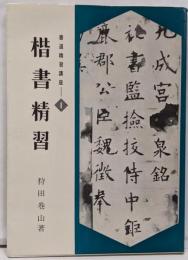 書道精習講座 1
楷書精習
狩田巻山著
九成宮醴泉銘
秘書監撿挍侍中鉅
鹿郡公臣魏徵奉